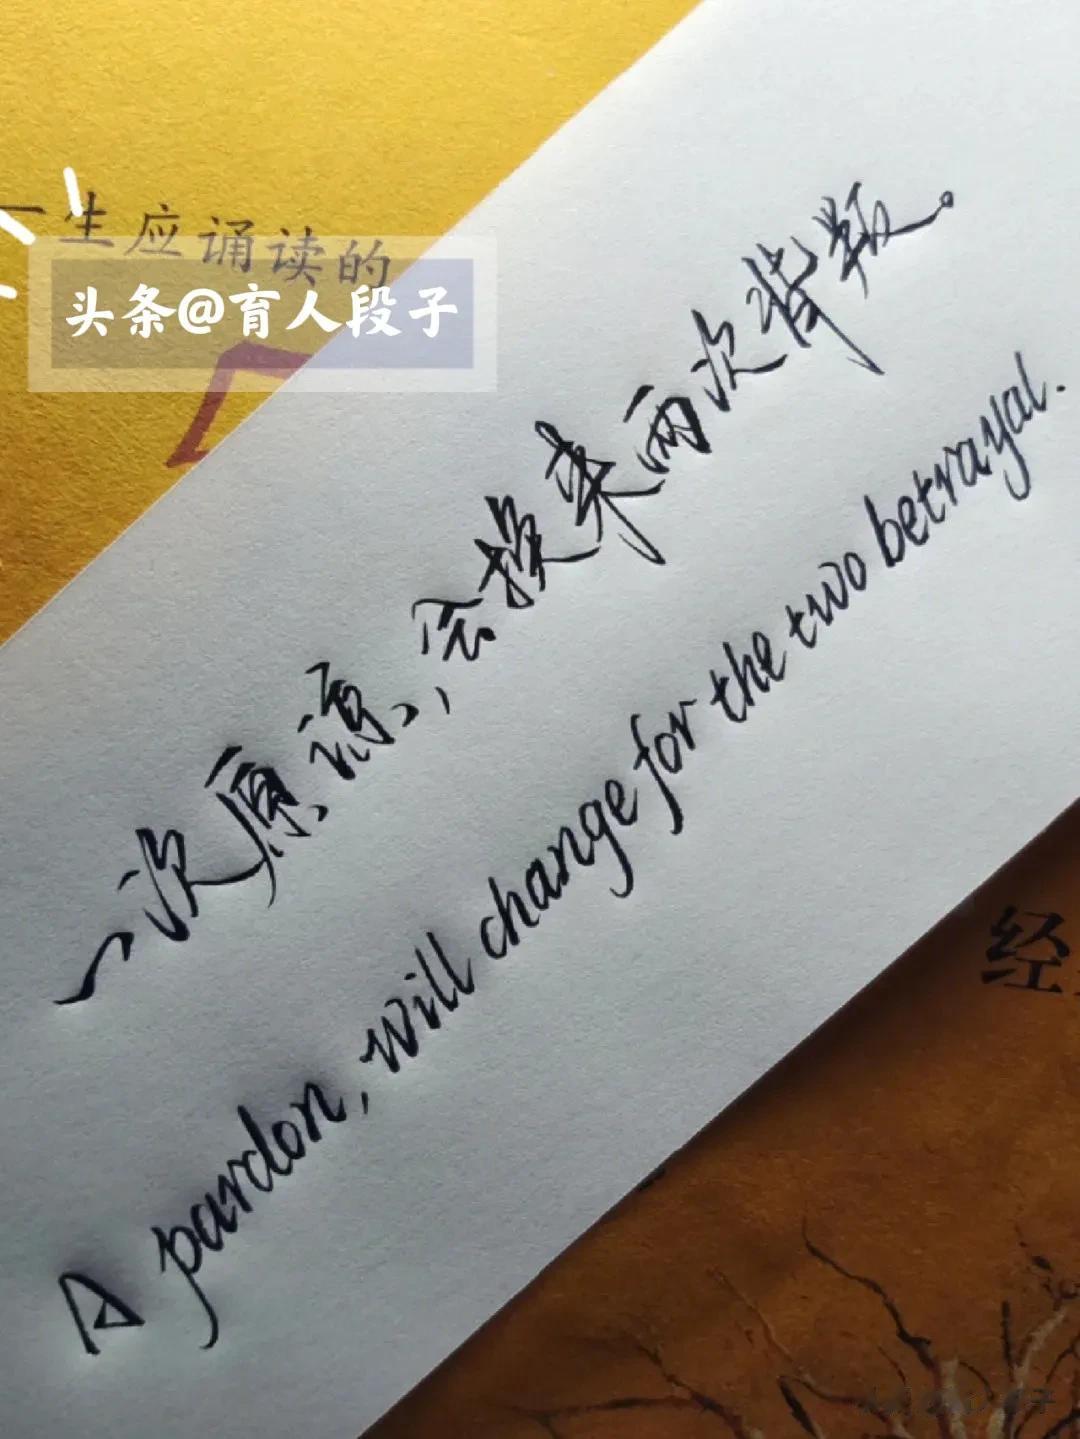 一生应诵读的
头条@育人段子
一次原谅,会换来两次背叛。
A pardon, will change for the two betrayal.
经